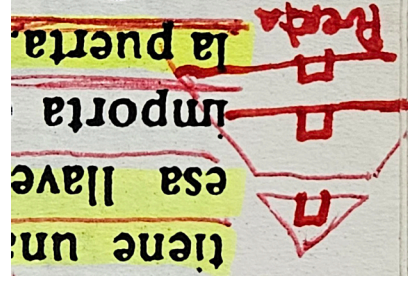 tiene una
esa llave
importa
la puerta.